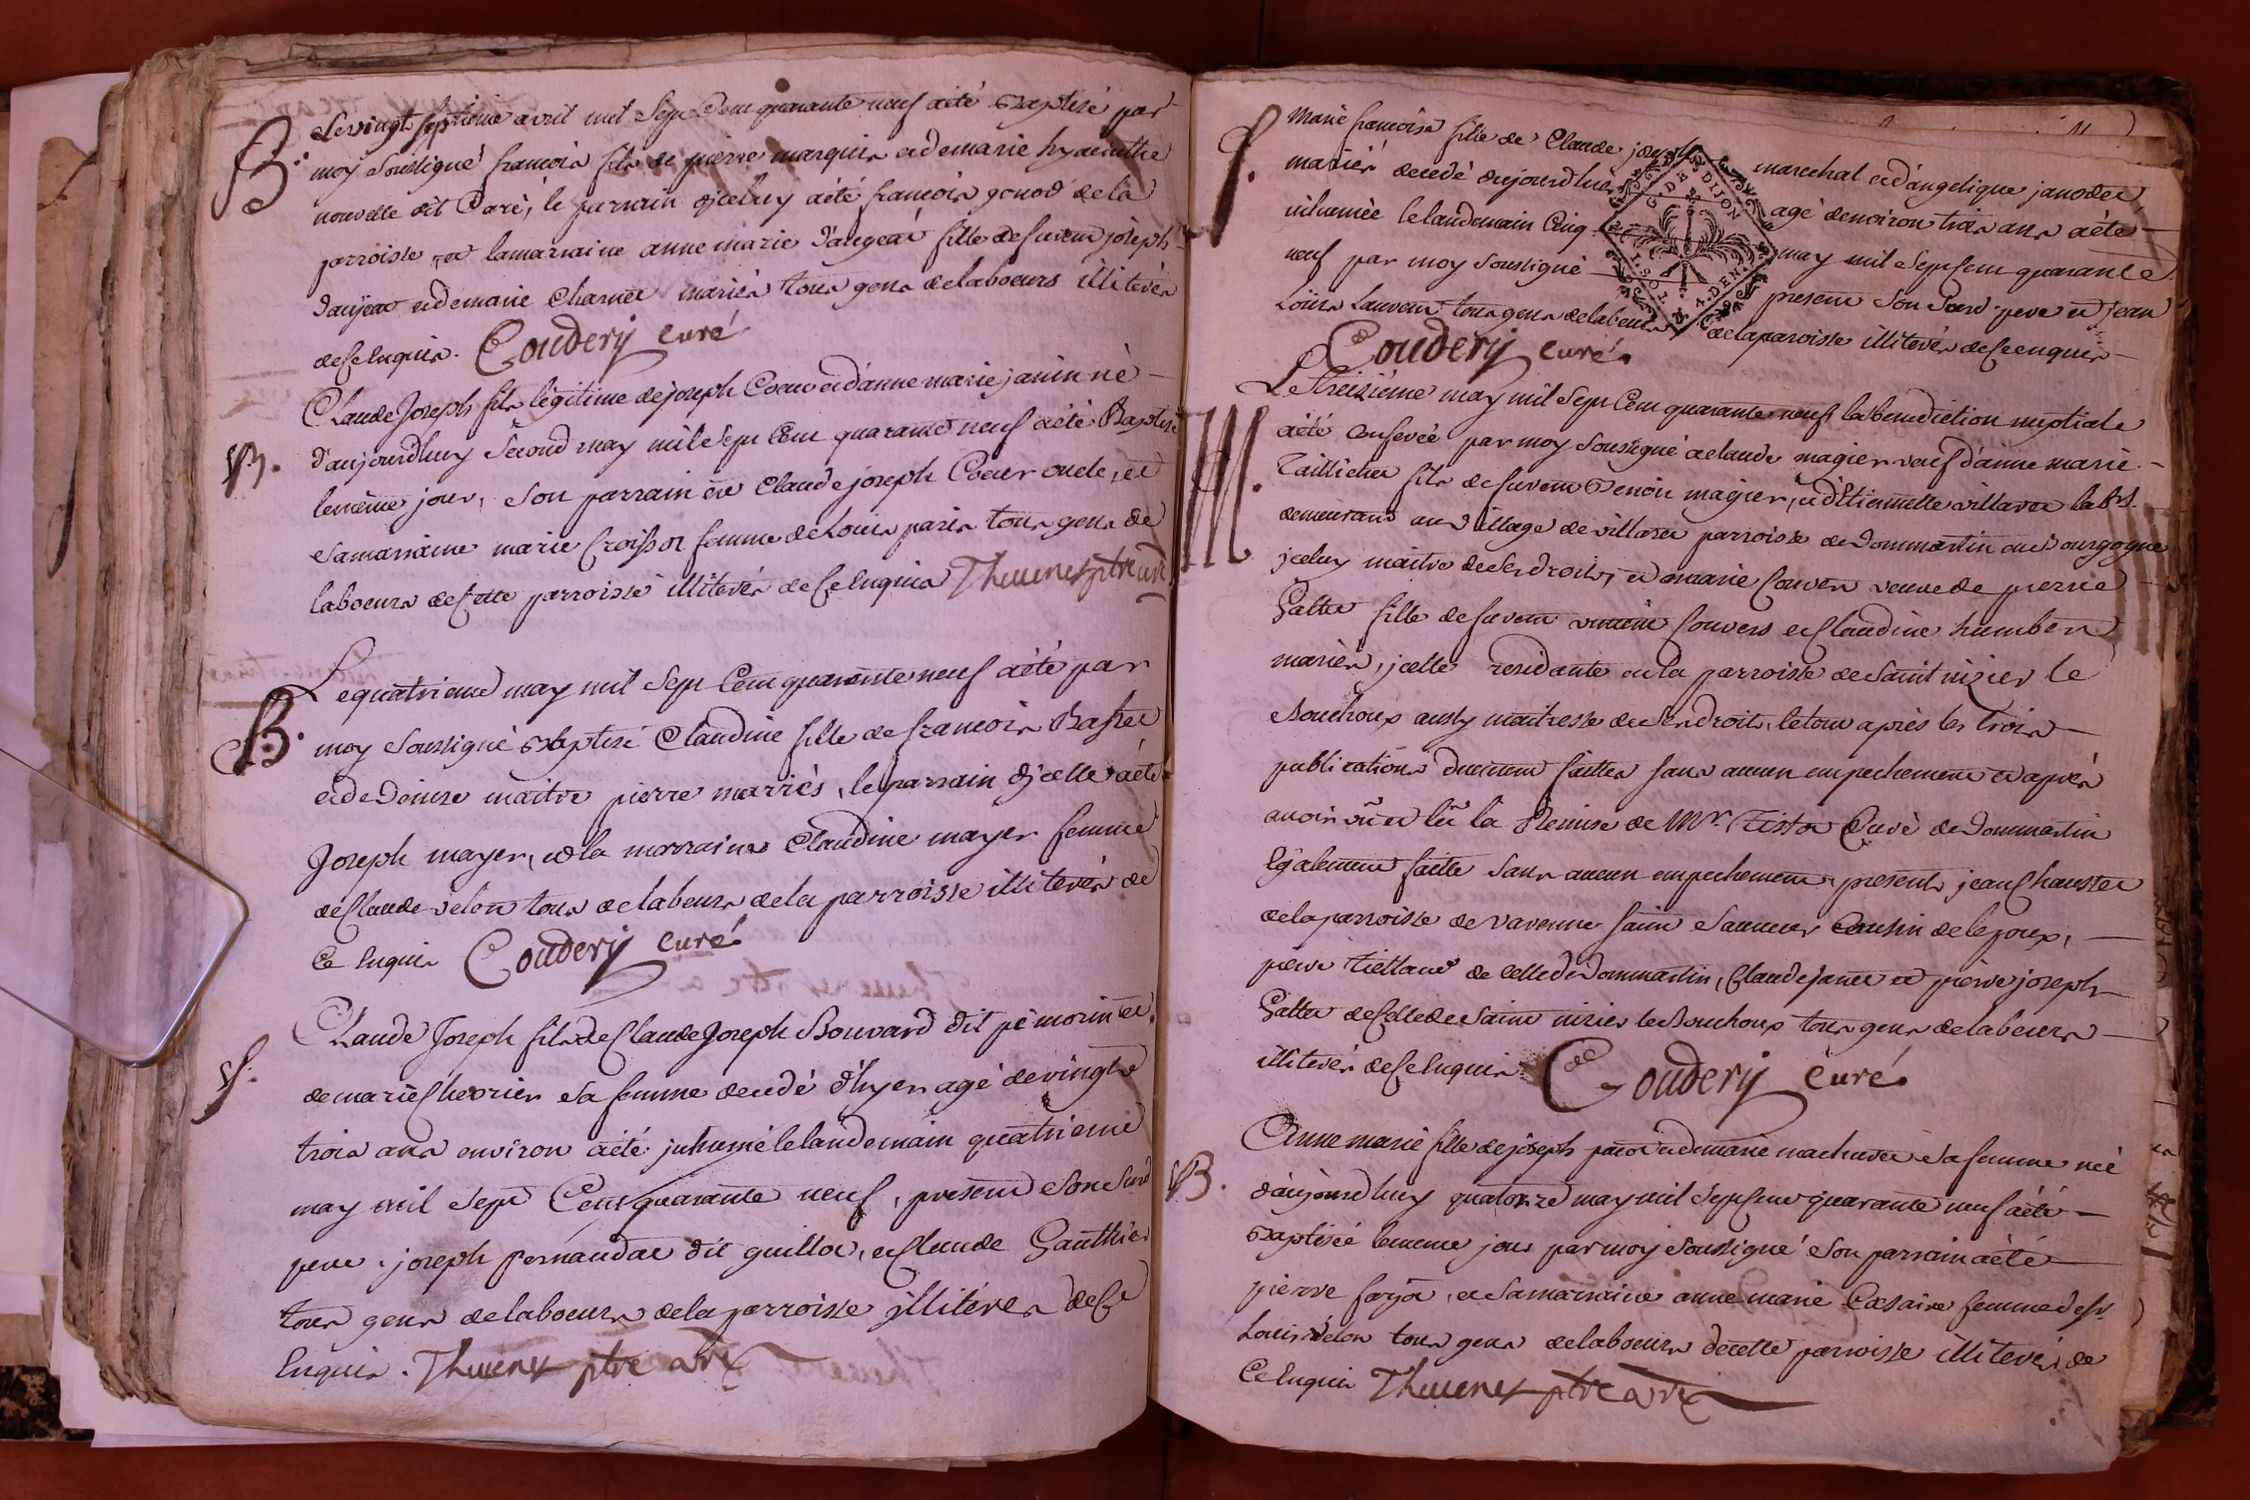 B. Le vingt septieme avril mil sept Cent quarante neuf a été Baptisé par
moy soussigné francois fils de pierre marquis et de marie hyacinthe
nouvelle dit Caré, le parrain d'iceluy a été francois gonod de la
parroisse et la marraine anne marie Daugeat fille de furent joseph
Daujeat et de marie Charnet mariés tous gens de labeurs illiterés
de Ce Enquis. Coudery curé
Claude Joseph fils legitime de joseph Coeur et d'anne marie janin né
B. d'aujourdhuy second may mil sept Cent quarante neuf a été Baptisé
le même jour, son parrain est Claude joseph Coeur oncle, et
sa marraine marie Croissot femme de Louis paris tous gens de
laboeurs de Cette parroisse illiterés de Ce Enquis Thevenet ptre
Le quatrieme may mil sept Cent quarante neuf a été par
B. moy soussigné Baptisé Claudine fille de francois Bastet
et de Denise maitre pierre marriés, le parrain d'icelle a été
Joseph mayer, et la marraine Claudine mayer femme
de Claude velon tous de labeurs de la parroisse illiterés de
Ce Enquis Coudery curé
Claude Joseph fils de Claude Joseph Bouvard dit pemorin et
S. de marie Chevrier sa femme decedé d'hyer agé de vingt
trois ans environ a été inhumé le landemain quatrieme
may mil sept Cent quarante neuf, present son surd
pere, joseph pernaudat dit guillot, et Claude Gautthier
tous gens de laboeurs de la parroisse illiterés de Ce
Enquis. Thevenet ptre
S. Marie francoise fille de Claude joseph marechal et d'angelique janodet
mariés decedé d'ujourdhuy agé d'environ trois ans a été
inhumée le landemain Cinq may mil sept Cent quarante
neuf par moy soussigné present son surd pere et jean
Loüis Lauvent tous gens de labeurs de la paroisse illiterés de Ce enquis
G. DE DIJON
Coudery curé.
Le treizieme may mil sept Cent quarante neuf la benediction nuptiale
M. a été conferée par moy soussigné a claude magier veuf d'anne marie
Taillieu fils de furent Benoit magier, et d'Etiennette villaret labs.
demeurant au village de villaret parroisse de Dommartin en Bourgogne
iceluy maitre de Ses droits, et a marie Couvers veuve de pierre
Galtet fille de furent Couvers et Claudine humbert
mariés, icelle residante en la parroisse de Saint nizier le
Bouchoux aussy maitresse de Ses droits, le tout après les trois
publications duement faittes sans aucun empechement et après
avoir vû et lû la Remise de Mr. Curé de Dommartin
Egalement faitte sans aucun empechement, presents jean Chaustet
de la parroisse de varenne saint Sauveur Cousin de lepoux,
pierre de celle de Dommartin, Claude janet et pierre joseph
Galtet de Celle de Saint nizier le Bouchoux tous gens de labeurs
illiterés de Ce Enquis Coudery curé.
Anne marie fille de joseph et de marie machuret sa femme née
B. d'aujourdhuy quatorze may mil sept Cent quarante neuf a été
Baptisée le meme jour par moy soussigné Son parrain a été
pierre, et Sa marraine anne marie Cesaire femme de
Louis velon tous gens de laboeurs de cette parroisse illiterés de
Ce Enquis Thevenet ptre